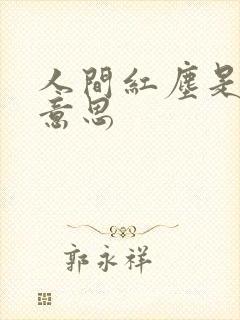 人間紅塵是
意思
郭永祥